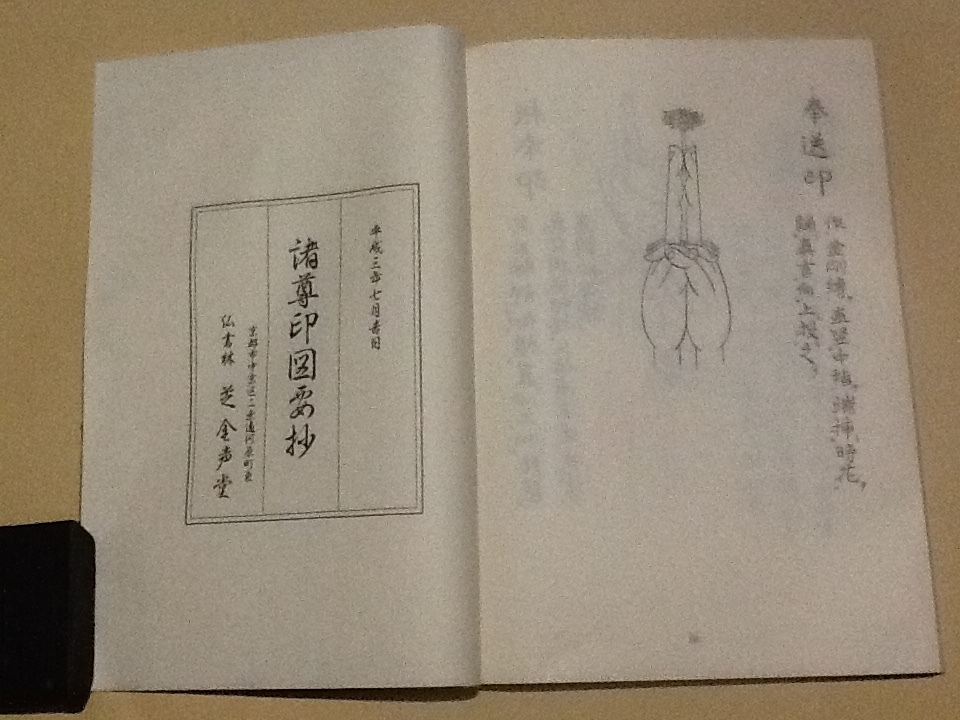 奉送印
作金剛縛、並竪中指、端挿時花、
誦真言向上投之。
平成三年七月吉日
諸尊印図要抄
京都市中京区二条通河原町東
仏書林 芝金声堂